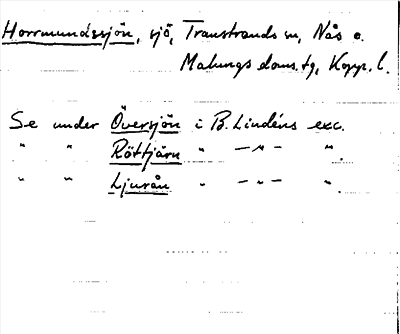 Horrmundssjön, sjö, Transtrands sn, Nås o.
Malungs doms.tg, Kopp. l.
Se under Översjön i B. Lindéns exc.
" " Röttjärn " — " — " .
" " Ljurån " — " — " .